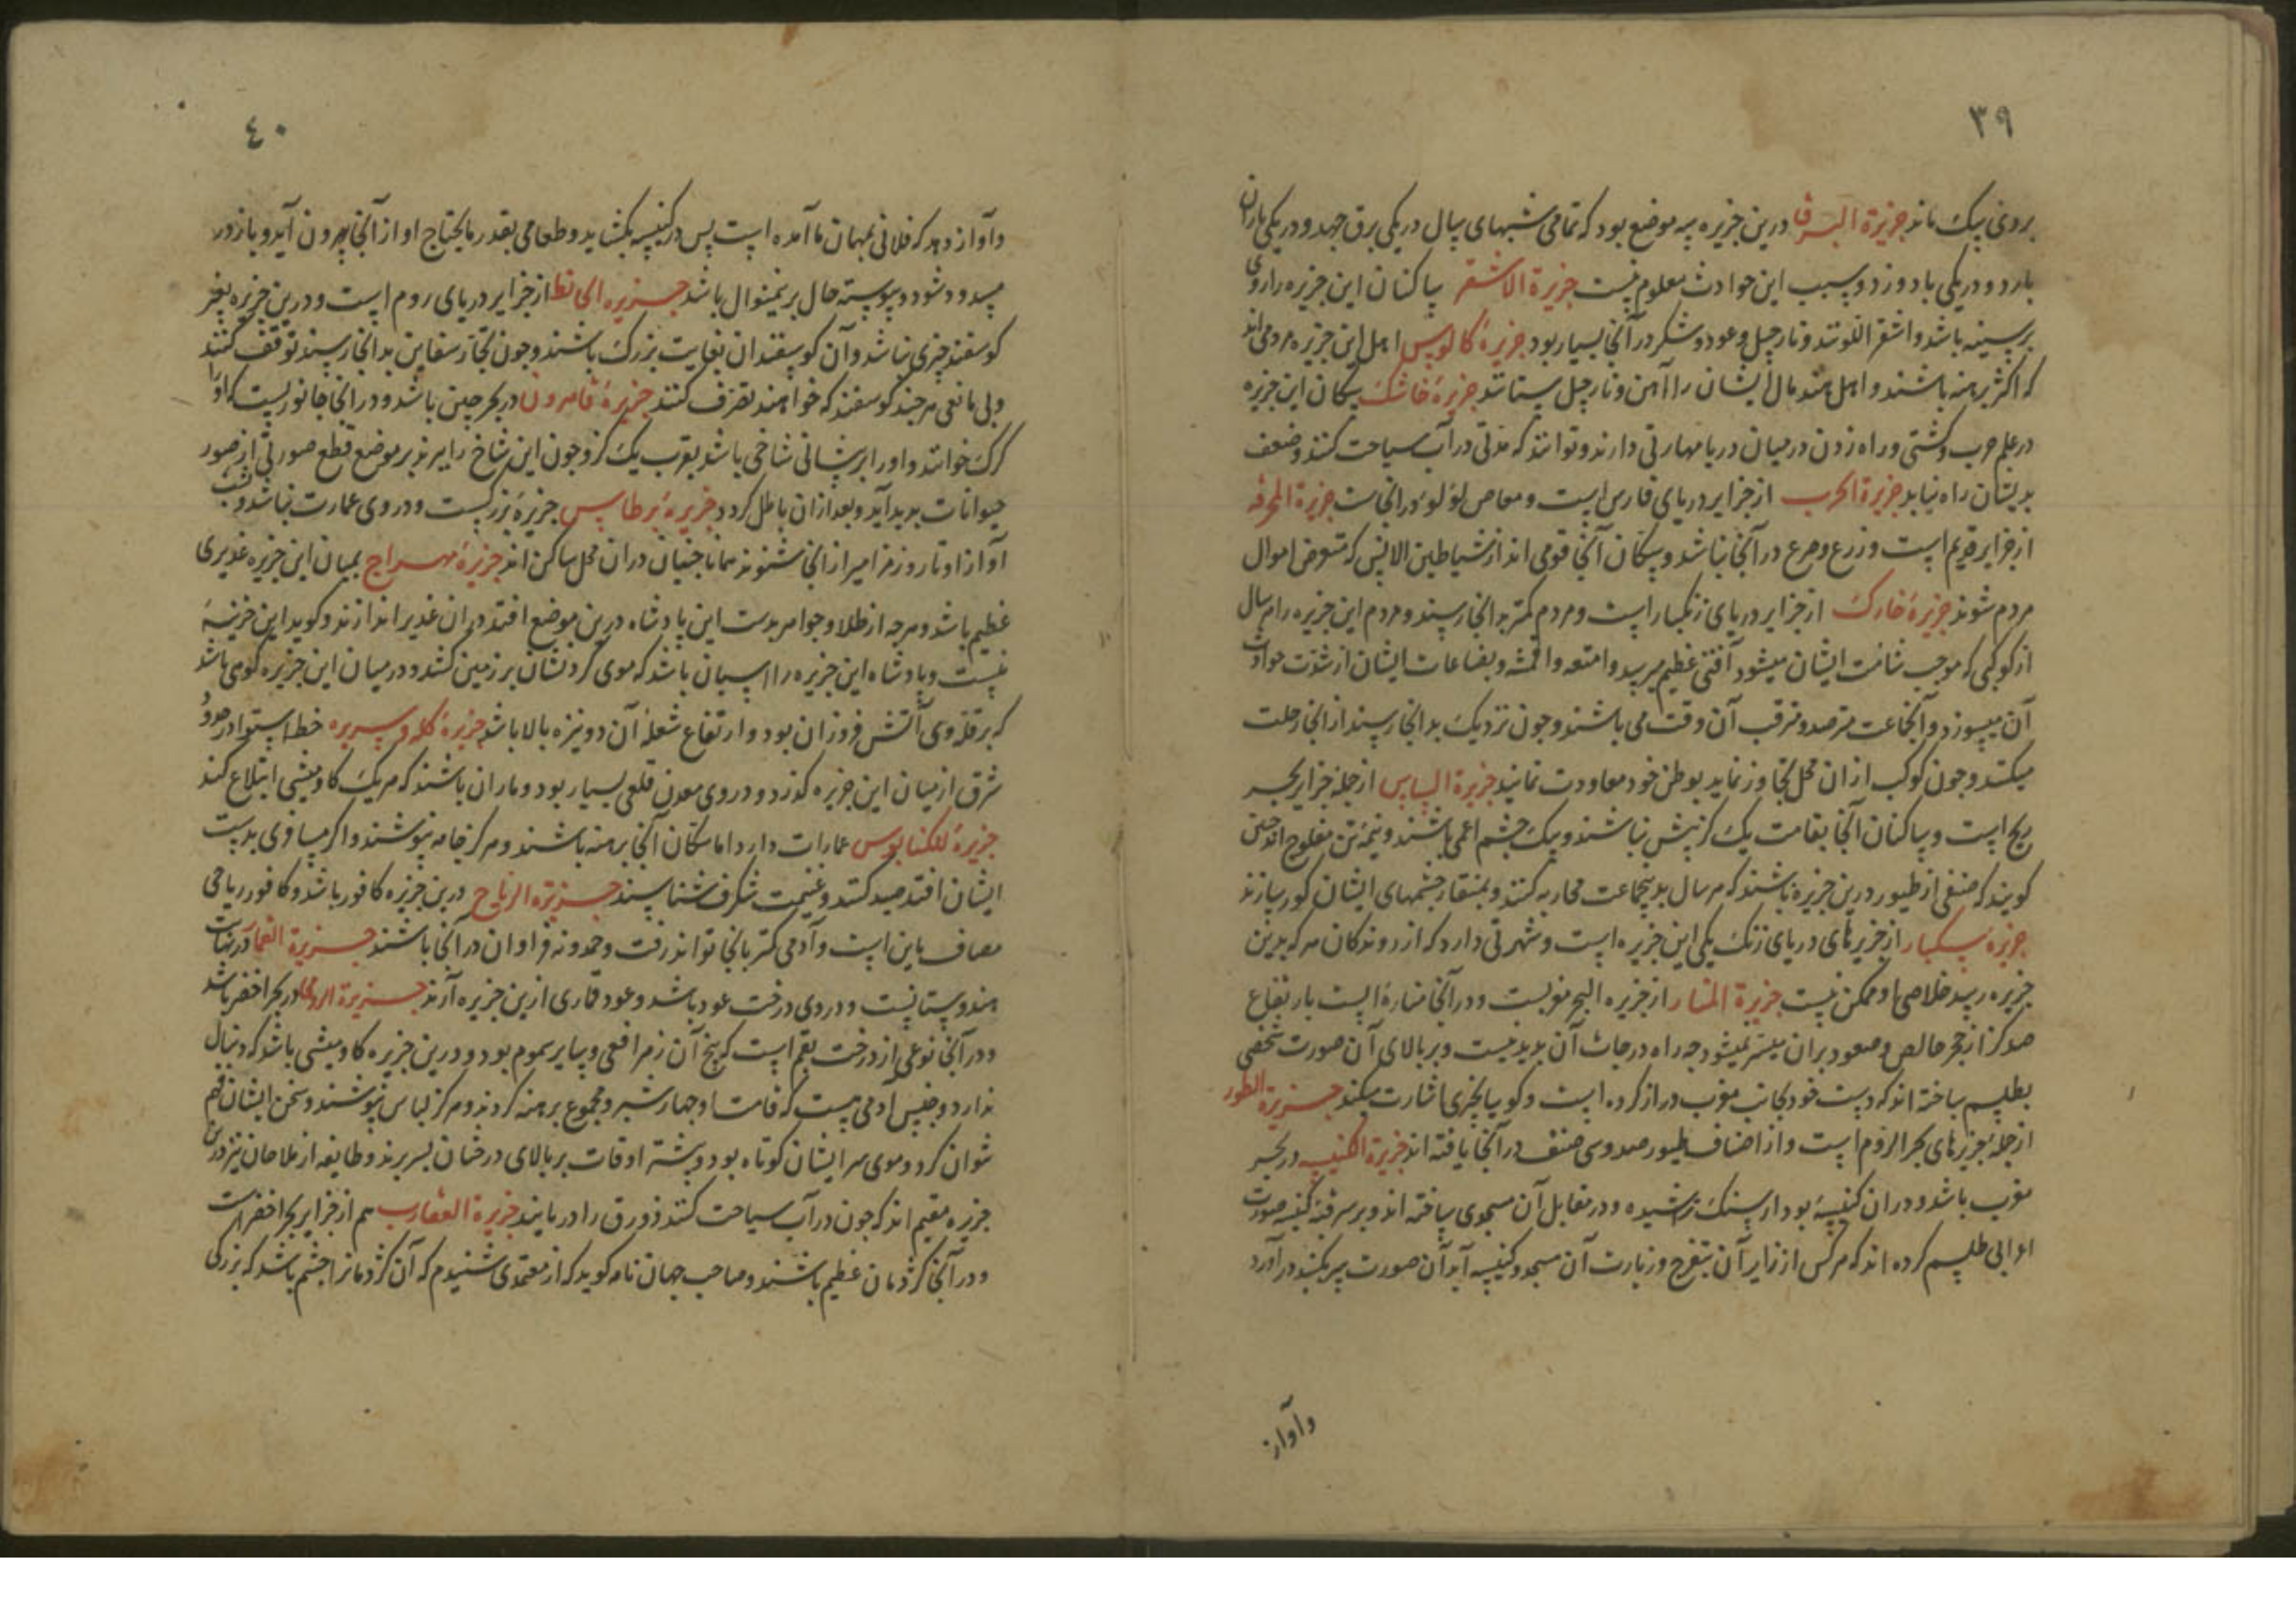 ۳۹
بروی پیک ماند جزیرة البرقا درین جزیره سه موضع بود که تمامی شبهای سال در یکی برق جهد و در یکی باران
بارد و در یکی باد وزد و سبب این حوادث معلوم نیست جزیرة الاشقر ساکنان این جزیره را روی
بر سینه باشد و اشقر اللونند و نارجیل و عود و شکر در آنجا بسیار بود جزیرهٔ کالوس اهل این جزیره مردمی اند
که اکثر برهنه باشند و اهل هند مال ایشان را آهن و نارجیل ستانند جزیرهٔ خاشک سکان این جزیره
در علم حرب و کشتی و راه زدن در میان دریا مهارتی دارند و توانند که مدتی در آب سیاحت کنند و ضعف
بدیشان راه نیابد جزیرة الحرب از جزایر دریای فارس است و مغاص لؤلؤ در انجاست جزیرة المحرقه
از جزایر قدیم است و زرع و ضرع در آنجا نباشد و سکان آنجا قومی اند از شیاطین الانس که متعرض اموال
مردم شوند جزیرهٔ خارک از جزایر دریای زنگبار است و مردم کمتر بدانجا رسند و مردم این جزیره را هر سال
از کوکبی که موجب شامت ایشان میشود آفتی عظیم میرسد و امتعه و اقمشه و بضاعات ایشان از شدت حوادث
آن میسوزد و آنجماعت مترصد و مترقب آن وقت می باشند و چون نزدیک بدانجا رسند از انجا رحلت
میکنند و چون کوکب از ان محل تجاوز نماید بوطن خود معاودت نمایند جزیرة البسابس از جمله جزایر بحر
ریح است و ساکنان آنجا بقامت یک گز بیش نباشند و یک چشم اعمی باشند و نیمه تن مفلوج اند چنین
کویند که صنفی از طیور درین جزیره باشند که هر سال بدینجماعت محاربه کنند و بمنقار چشمهای ایشان کور سازند
جزیره سکسار از جزیرهای دریای زنک یکی این جزیره است و شهرتی دارد که از روندکان هر که بدین
جزیره رسد خلاصی او ممکن نیست جزیرة المنار از جزیره البحر مغربست و در آنجا منارهٔ است بارتفاع
صد گز از حجر خالص و صعود بران میسر نمیشود چه راه درجات آن بدید نیست و بر بالای آن صورت شخصی
بطلسم ساخته اند که دست خود بجانب مغرب دراز کرده است و کویی بچیزی اشارت میکند جزیرة الطور
از جمله جزیرهای بحر الروم است و از اصناف طیور صد و سی صنف در آنجا یافته اند جزیرة الکنیسه در بحر
مغرب باشد و دران کنیسهٔ بود از سنگ تراشیده و در مقابل آن مسجدی ساخته اند و بر سر قبه کنیسه صورت
غرابی طلسم کرده اند که هر کس از زایران بتفرج و زیارت آن مسجد و کنیسه آید آن صورت سر بکنبد در آورد
وآواز
۴۰
وآواز دهد که فلانی بمهمان ما آمده است پس در کنیسه بکشاید و طعامی بقدر مایحتاج او از آنجا بیرون آید و باز در
مسدود شود و پیوسته حال برینمنوال باشد جزیره الحانظ از جزایر دریای روم است و درین جزیره بغیر
کوسفند چیزی نباشد و آن کوسفندان بغایت بزرک باشند و چون تجار سفاین بدانجا رسند توقف کنند
و بی مانعی هر چند کوسفند که خواهند تصرف کنند جزیرهٔ قامرون در بحر چین باشد و در انجا جانوریست که او را
کرک خوانند و او را بر پیشانی شاخی باشد بقرب یک گز و چون این شاخ را ببرند بر موضع قطع صورتی از صور
حیوانات بدید آید و بعد ازان باطل کردد جزیرهٔ برطاییس جزیرهٔ بزرگیست و در وی عمارت نباشد و شب
آواز اوتار و مزامیر از انجا شنوند همانا جنیان دران محل ساکن اند جزیرهٔ مهراج بمیان این جزیره غدیری
عظیم باشد و هرچه از طلا و جواهر بدست این پادشاه درین موضع افتد دران غدیر اندازند و کوید این خزینهٔ
نیست و پادشاه این جزیره را اسپان باشد که موی کردنشان بر زمین کشد و در میان این جزیره کوهی باشد
که بر قلهٔ وی آتش فروزان بود و ارتفاع شعلهٔ آن دو نیزه بالا باشد جزیرهٔ کله و سریره خط استوا در حدود
شرق از میان این جزیره گذرد و در وی معدن قلعی بسیار بود و ماران باشند که هریک کاومیشی ابتلاع کند
جزیرهٔ لنکبالوس عمارات دارد اما سکان آنجا برهنه باشند و هرکز جامه نپوشند و اگر مسافری بدست
ایشان افتد صید کنند و غنیمت شگرف شناسند جزیرة الرباح درین جزیره کافور باشد و کافور ریاحی
مضاف باین است و آدمی کمتر بانجا تواند رفت و حمدونه فراوان در آنجا باشند جزیرة القمار در نهایت
هندوستانست و در وی درخت عود باشد و عود قماری ازین جزیره آرند جزیرة الرامی در بحر اخضر باشد
و در آنجا نوعی از درخت بقم است که بیخ آن زهر افعی و سایر سموم بود و درین جزیره کاومیشی باشد که دنبال
ندارد و جنس آدمی هست که قامت او چهار شبر و مجموع برهنه گردند و هرکز لباس نپوشند و سخن ایشان فهم
نتوان کرد و موی سر ایشان کوتاه بود و بیشتر اوقات بر بالای درختان بسر برند و طایفه از ملاحان نیز درین
جزیره مقیم اند که چون در آب سیاحت کنند زورق را دریابند جزیرة العقارب هم از جزایر بحر اخضر است
و در آنجا کژدمان عظیم باشند و صاحب جهان نامه کوید که از معتمدی شنیدم که آن کژدمانرا چشم باشد که بزرکی